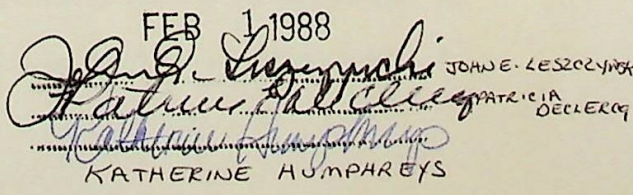 FEB 1 1988
John E. Leszczynski JOHN E. LESZCZYNSKI
Patricia DeClercq PATRICIA
DECLERCQ
Katherine Humphreys
KATHERINE HUMPHREYS